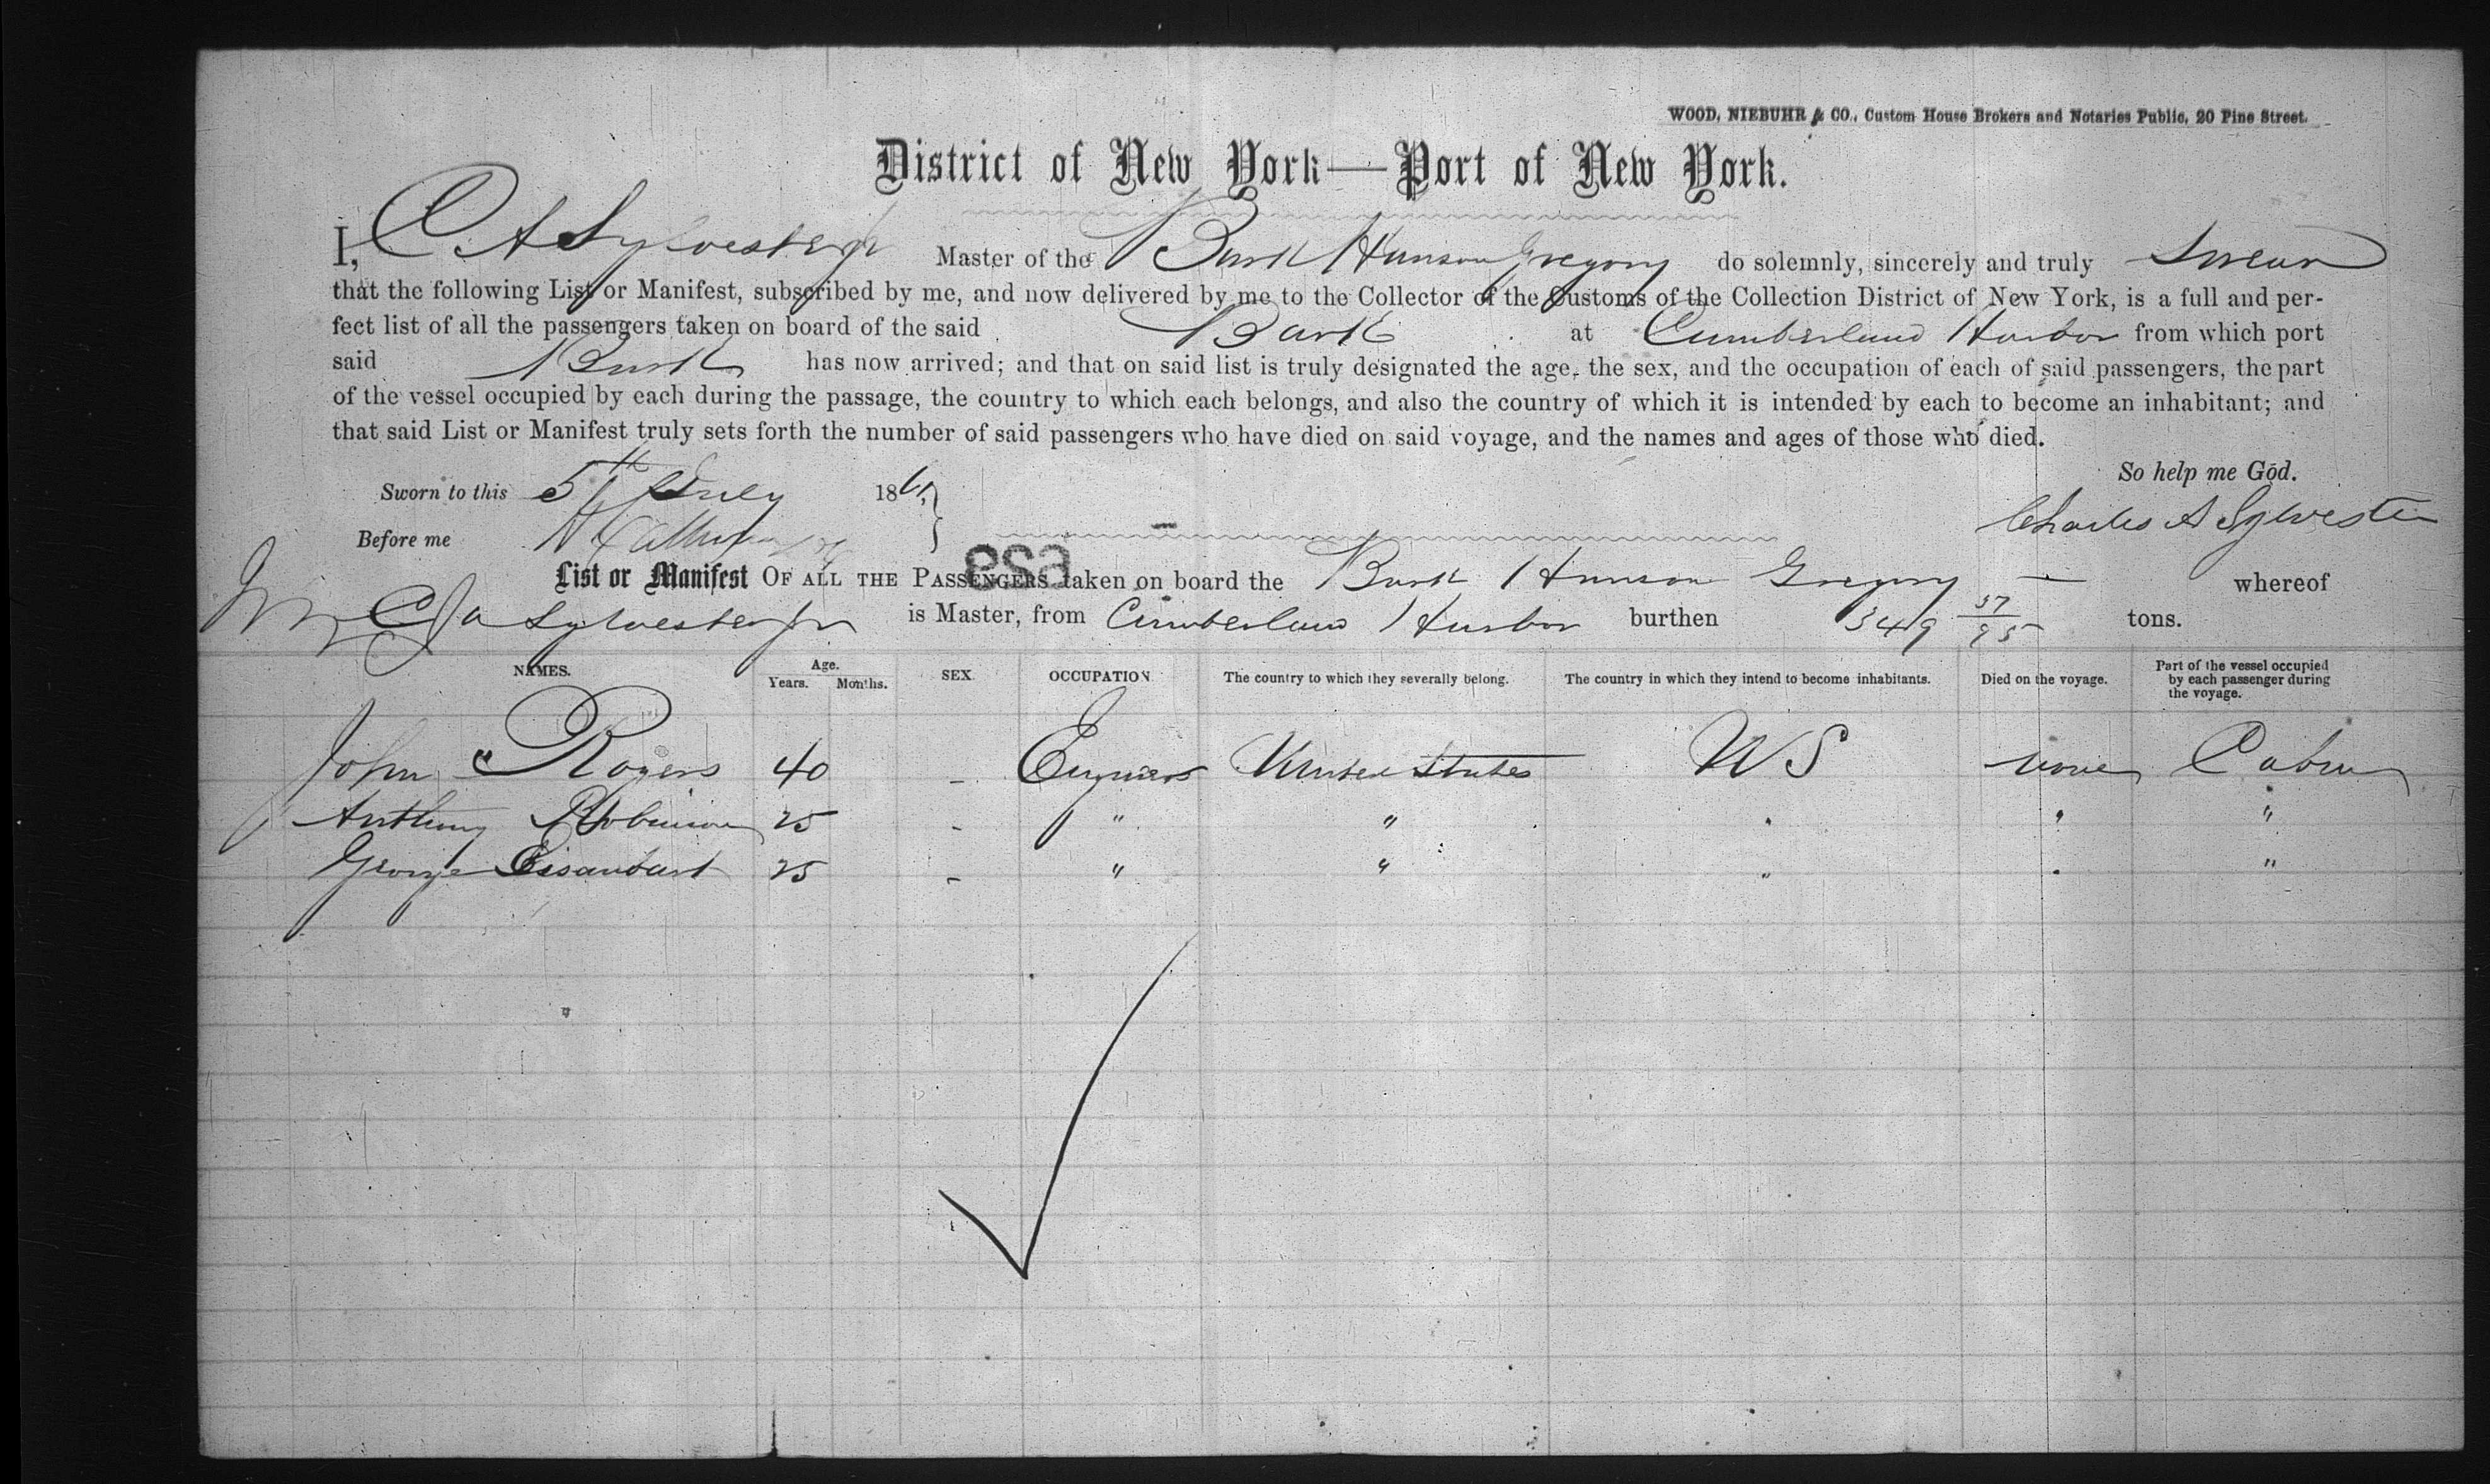 WOOD, NIEBUHR & CO., Custom House Brokers and Notaries Public, 20 Pine Street.
District of New York—Port of New York.
I, C. A Sylvester Jr Master of the Bark Hanson Gregory do solemnly, sincerely and truly Swear
that the following List or Manifest, subscribed by me, and now delivered by me to the Collector of the Customs of the Collection District of New York, is a full and per-
fect list of all the passengers taken on board of the said Bark at Cumberland Harbor from which port
said Bark has now arrived; and that on said list is truly designated the age, the sex, and the occupation of each of said passengers, the part
of the vessel occupied by each during the passage, the country to which each belongs, and also the country of which it is intended by each to become an inhabitant; and
that said List or Manifest truly sets forth the number of said passengers who have died on said voyage, and the names and ages of those who died.
So help me God.
Sworn to this 5th July 1861,
Charles A Sylvester
Before me
List or Manifest OF ALL THE PASSENGERS taken on board the Bark Hanson Gregory — whereof
Sylvester Jr is Master, from Cumberland Harbor burthen 349 37/95 tons.
NAMES. Age. Years. Months. SEX. OCCUPATION. The country to which they severally belong. The country in which they intend to become inhabitants. Died on the voyage. Part of the vessel occupied by each passenger during the voyage.
John Rogers 40 - United States U S none Cabin
Anthony Robinson 25 - " " " " "
George 25 - " " " " "